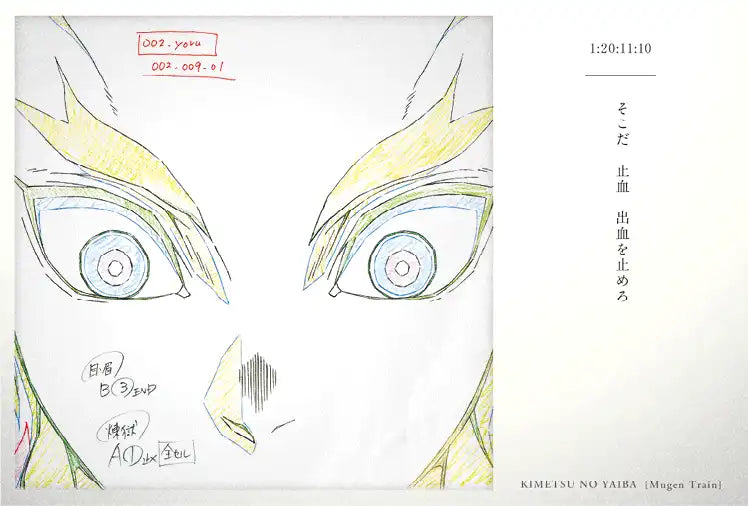 002-yoru
002-009-01
目・眉
B③END
煉獄
A①止メ 全セル
1:20:11:10
そこだ 止血 出血を止めろ
KIMETSU NO YAIBA [Mugen Train]